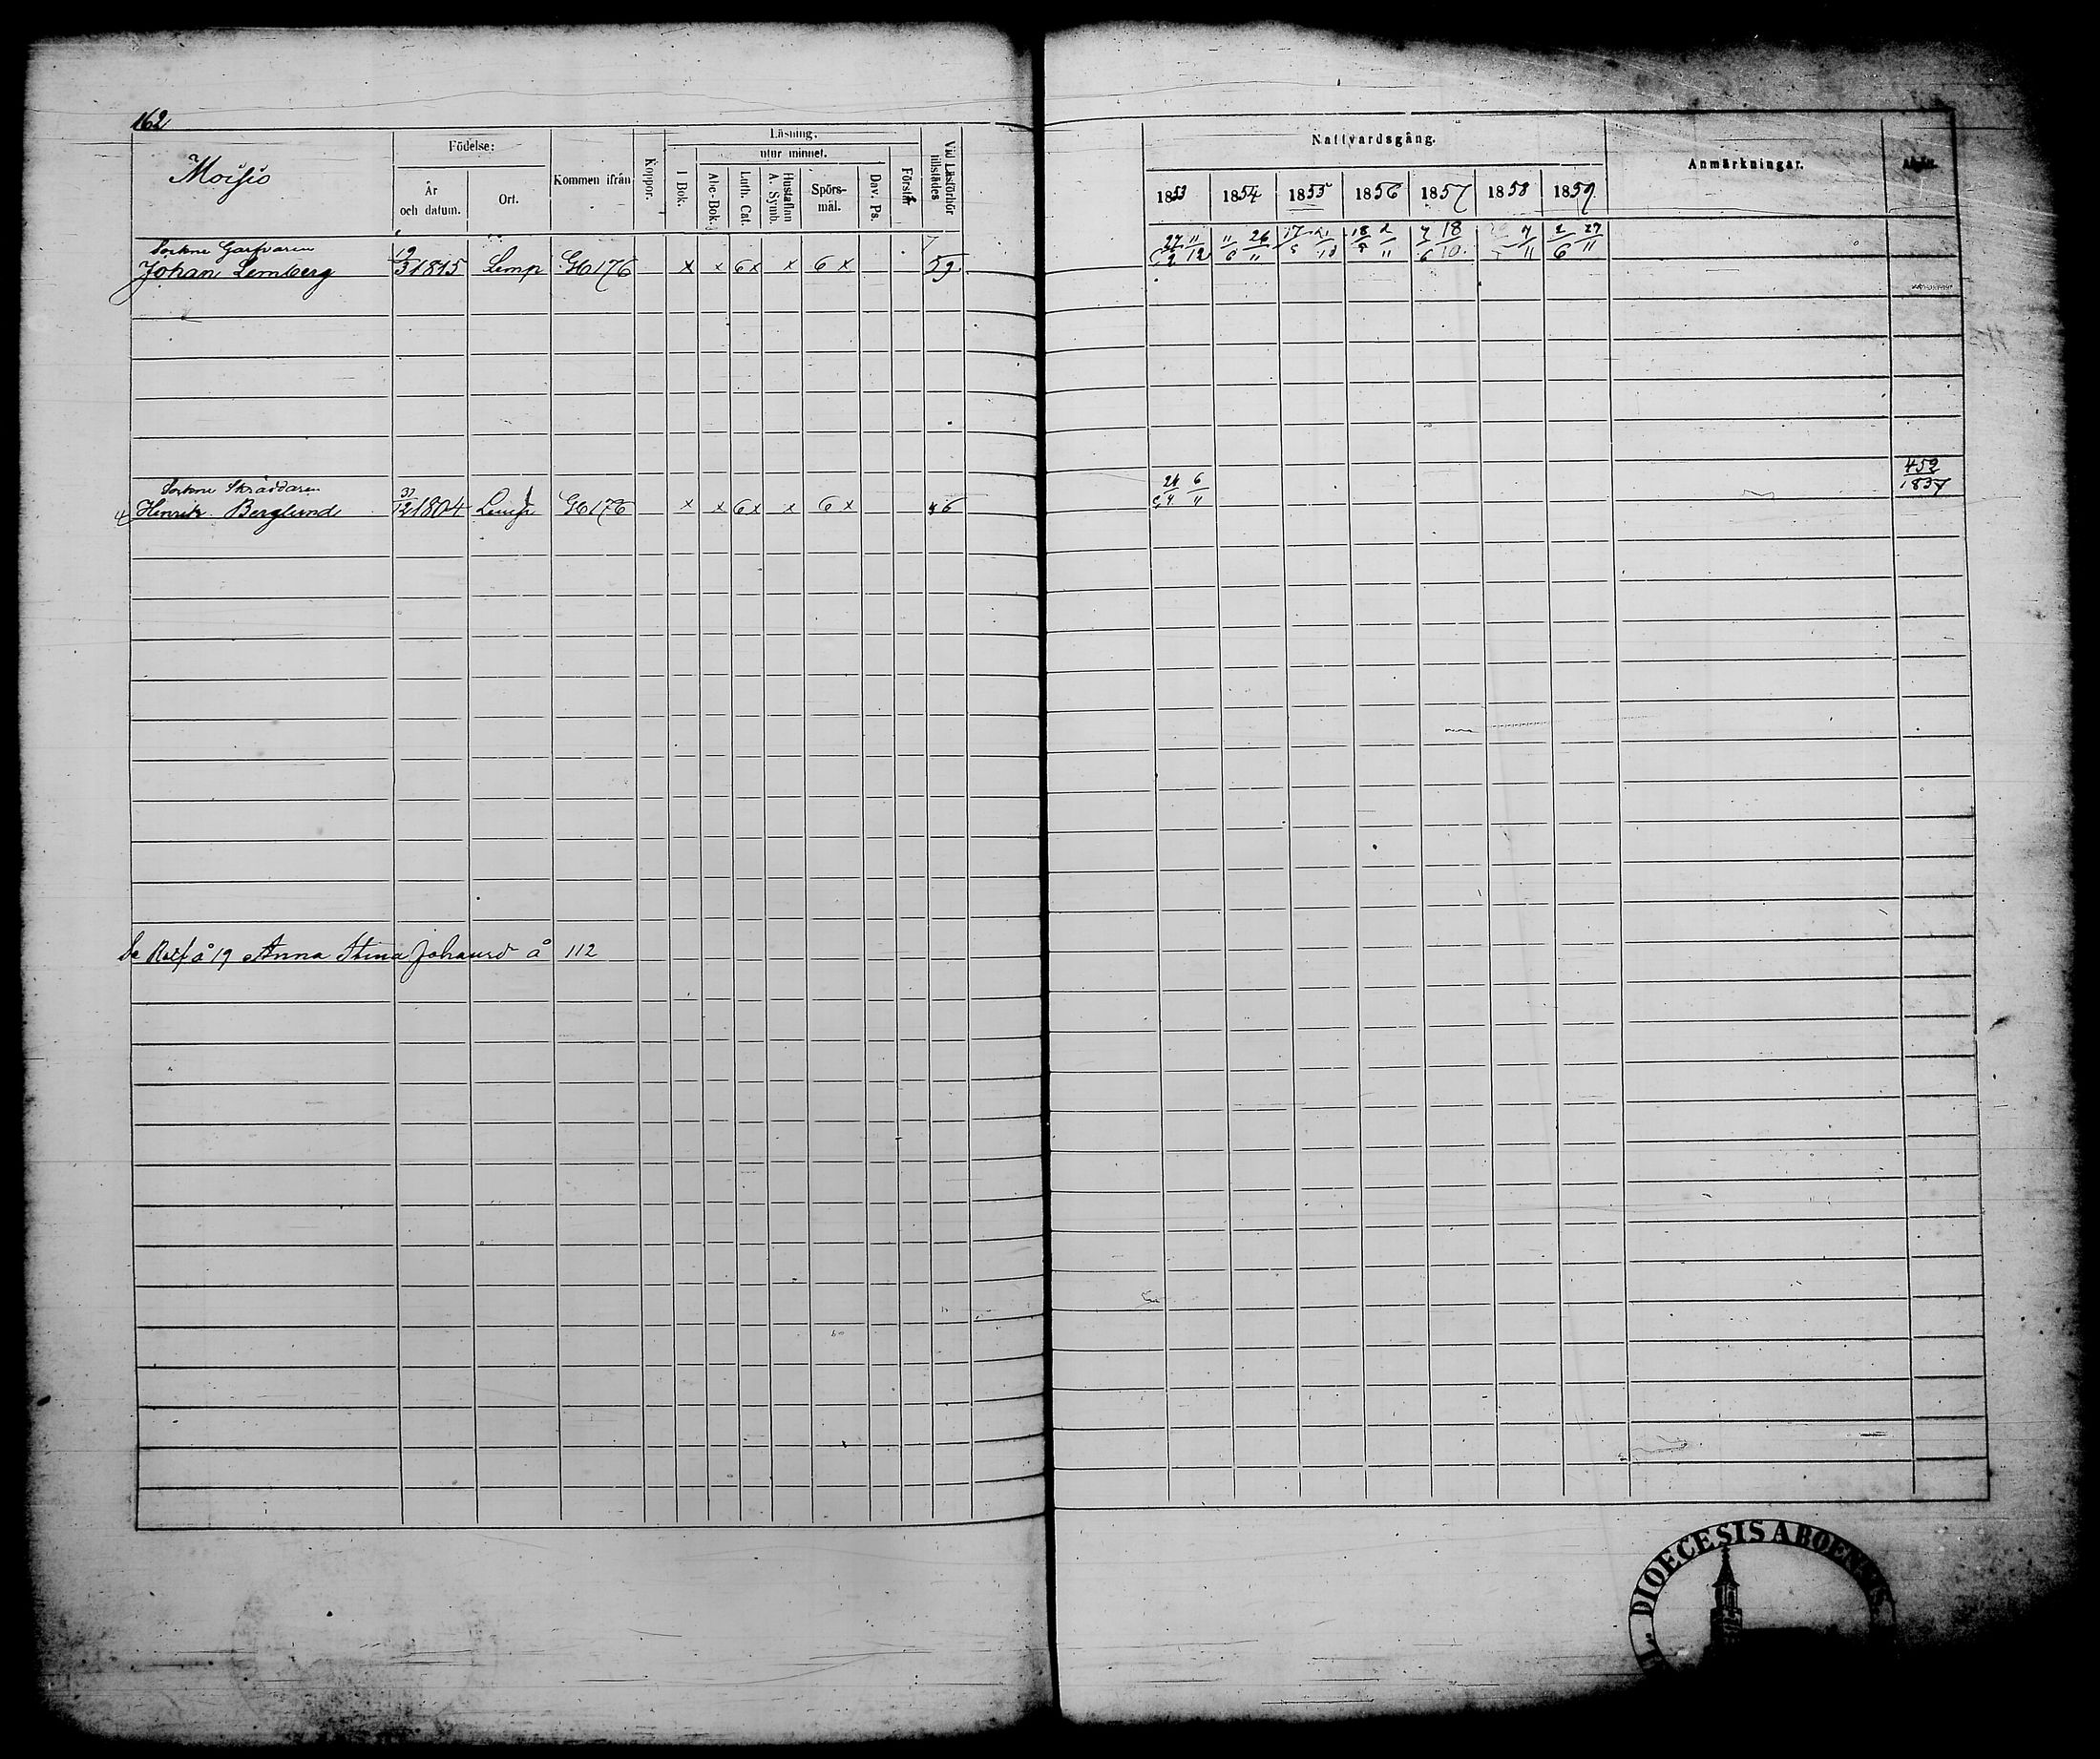 162
Moisio
Födelse:
År och datum.
Ort.
Kommen ifrån
Koppor.
Läsning.
I Bok.
utur minnet.
Abc-Bok.
Luth. Cat.
Hustaflan A. Symb.
Spörs-mål.
Dav. Ps.
Förstår
Vid Läsförhör tillstädes
Nattvardsgång.
1853 1854 1855 1856 1857 1858 1859
Anmärkningar.
Sockne Garfvaren
Johan Lemberg 19/3 1815 Lemp Gb 176 x x 6 x x 6 x 59
27/2 11/12 11/6 26/11 18/5 2/11 7/6 18/10 4/11 2/6 27/11
Sockne Skräddaren
Henrik Berglund 31/12 1804 Lemp Gb 176 x x 6 x x 6 x 56
24/4 6/11
452
1857
Anna Stina Johansd å 112
DIOECESIS ABOENSIS